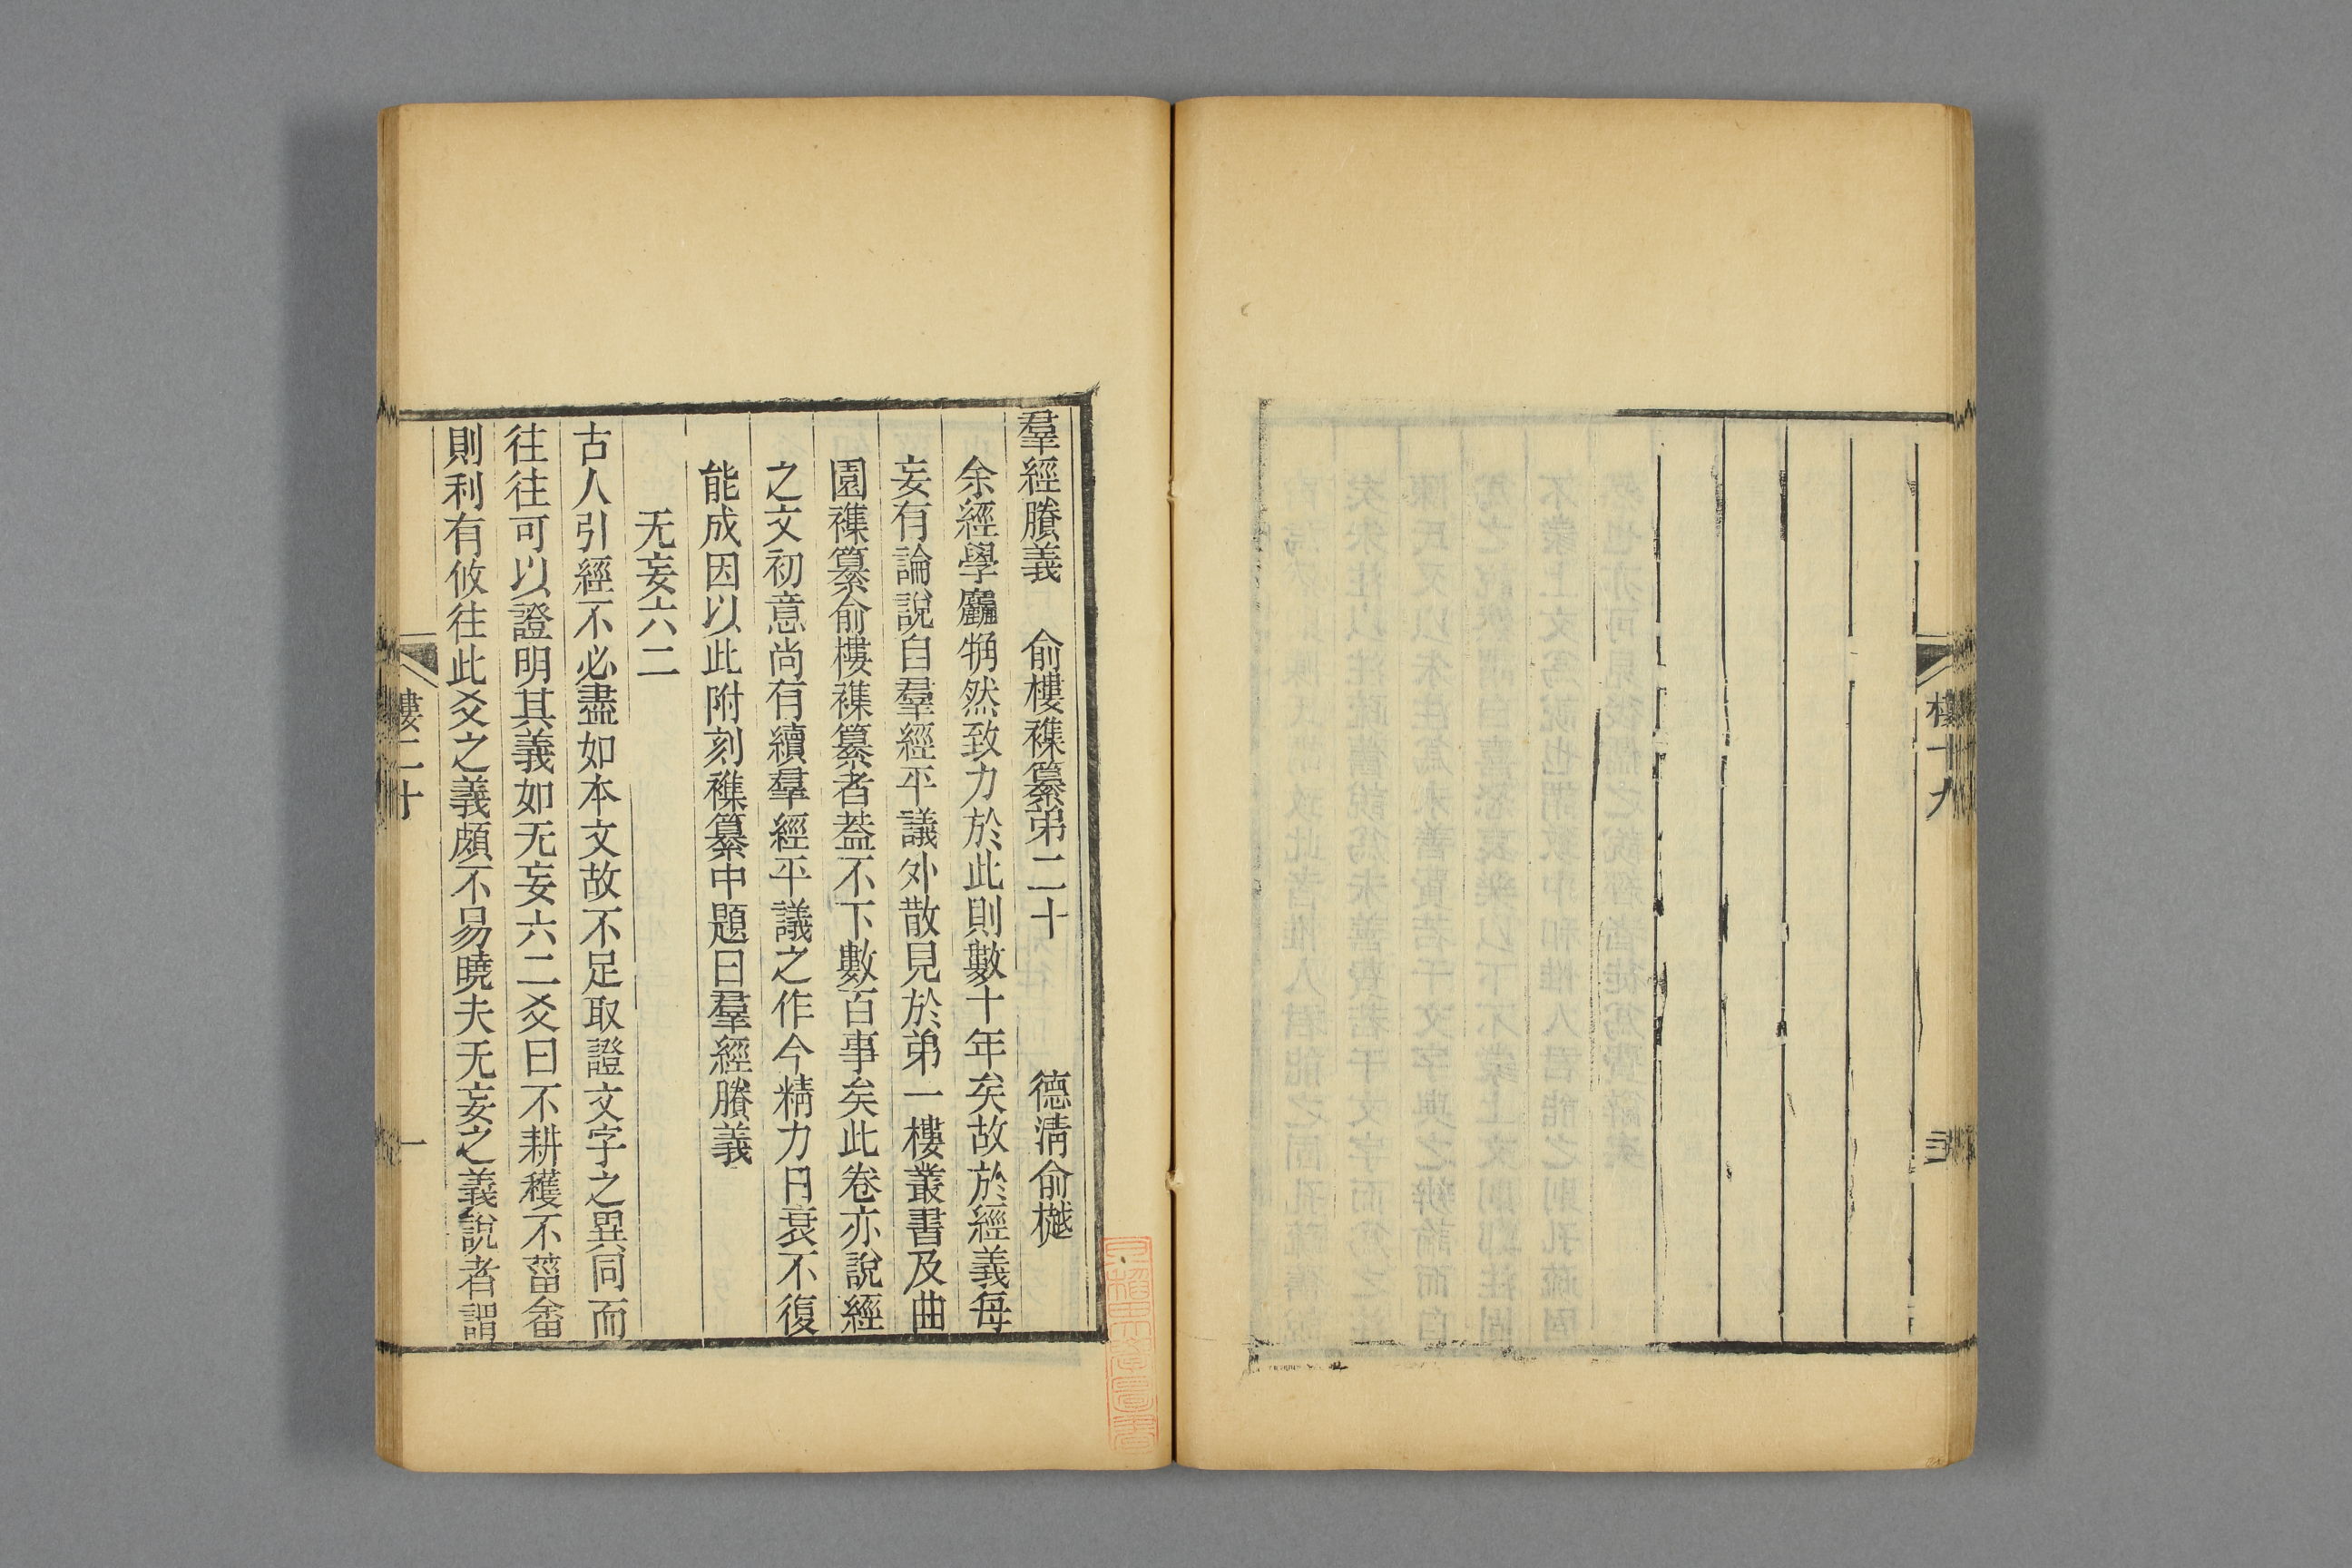 樓十九
羣經賸義　俞樓襍纂弟二十　德淸俞樾
余經學麤觕然致力於此則數十年矣故於經義每
妄有論說自羣經平議外散見於弟一樓叢書及曲
園襍纂俞樓襍纂者葢不下數百事矣此卷亦說經
之文初意尚有續羣經平議之作今精力日衰不復
能成因以此附刻襍纂中題曰羣經賸義
无妄六二
古人引經不必盡如本文故不足取證文字之異同而
往往可以證明其義如无妄六二爻曰不耕穫不菑畬
則利有攸往此爻之義頗不易曉夫无妄之義說者謂
樓二十
一